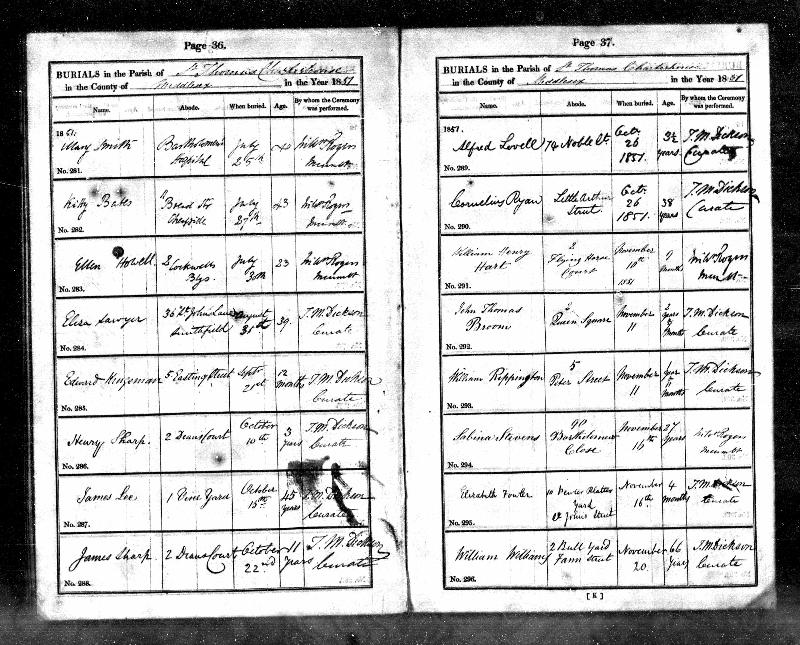 Page 36.
BURIALS in the Parish of St. Thomas Charterhouse
in the County of Middlesex in the Year 1851
Name. Abode. When buried. Age. By whom the Ceremony was performed.
1851.
Mary Smith Bartholomews Hospital July 25th
No. 281.
Kirby Bates Bread St Cheapside July 27th 43
No. 282.
Ellen Howell 2 Cockwells Bgs. July 30th 23
No. 283.
Eliza Sawyer 36 St. John Lane Smithfield August 31st 39 T. M. Dickson Curate
No. 284.
Edward Kingsman 5 Easting Street Septr 21st 12 months T. M. Dickson Curate
No. 285.
Henry Sharp. 2 Deans Court October 10th 3 years T. M. Dickson Curate
No. 286.
James Lee 1 Vine Yard October 15th 45 years T. M. Dickson Curate
No. 287.
James Sharp 2 Deans Court October 22nd 11 years T. M. Dickson Curate
No. 288.
Page 37.
BURIALS in the Parish of St. Thomas Charterhouse
in the County of Middlesex in the Year 1851
Name. Abode. When buried. Age. By whom the Ceremony was performed.
1851.
Alfred Lovell 74 Noble St. Octr. 26 1851. 3½ years. T. M. Dickson Curate
No. 289.
Cornelius Ryan Little Arthur Street Octr. 26 1851. 38 years T. M. Dickson Curate
No. 290.
William Henry Hart 2 Flying Horse Court November 10th 1851 9 months Wm Rogers
No. 291.
John Thomas Broom 2 Queen Square November 11 2 years months T. M. Dickson Curate
No. 292.
William Rippington 5 Peter Street November 11 year months T. M. Dickson Curate
No. 293.
Sabina Stevens 40 Bartholomew Close November 16th 27 years Wm Rogers
No. 294.
Elizabeth Fowler 10 Pewter Platter Yard St Johns Street November 16th. 4 months T. M. Dickson Curate
No. 295.
William Williams 2 Bull Yard Fann Street November 20. 66 years T. M. Dickson Curate
No. 296.
[ K ]